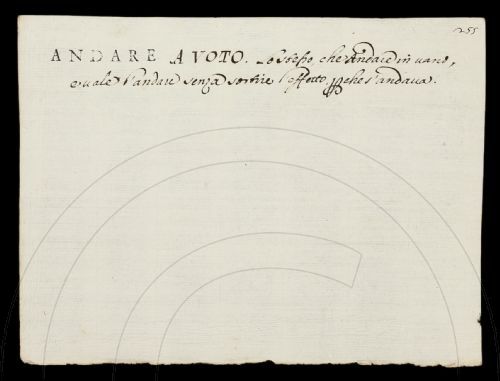 255
ANDARE A VOTO. Lo stesso, che Andare in vano,
e vale l'andare senza sortire l'effetto, p che s'andava.